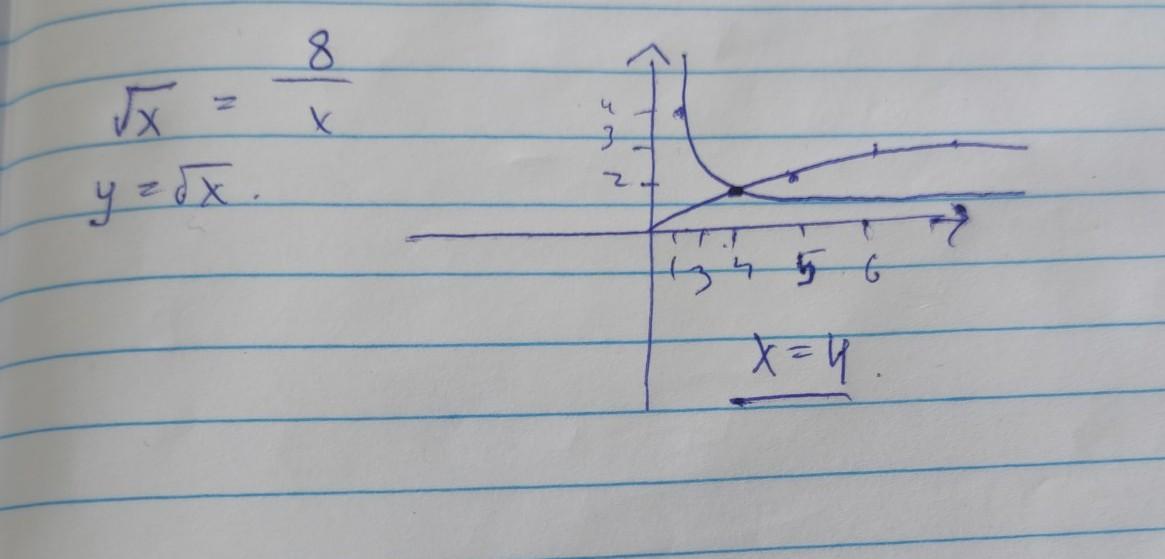 √x = 8/x
y = √x.
4
3
2
1 3 4 5 6
x = 4.